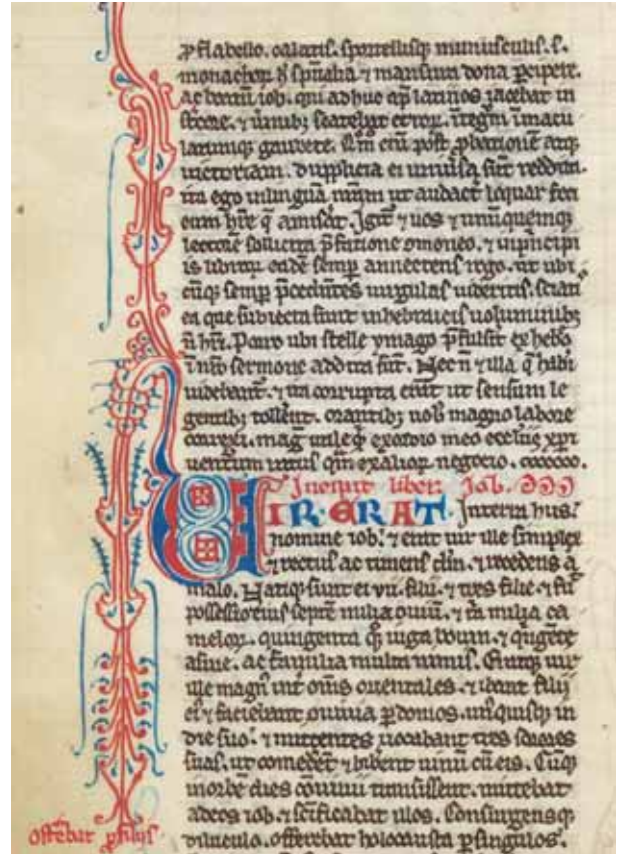 ꝑ flabello. calatis. sportellisqꝫ munusculis. s.
monachoꝝ ħ sp̃ualia ⁊ mansura dona ꝑcipere.
ac beatũ iob. qui adhuc ap̃ latinos iacebat in
stercore. ⁊ ũmibꝫ scatebat erroꝝ. ĩtegrũ ĩmacu
latumqꝫ gaudete. Q̃m eni᷑ post ꝓbationẽ atqꝫ
uictoriam. dupplicia ei uniũsa sũt reddita.
ita ego in lingua nr̃am ut audacť loquar feci
eum hr̃e q̃ amisat̾. Igit̾ ⁊ uos ⁊ unũquemqꝫ
lectorẽ sollicita p̃fatione omoneo. ⁊ in p̾ncipi
is libroꝝ eadẽ semꝑ annectens rogo. ut ubi
cũqꝫ semꝑ p̃cedẽtes uirgulas uideritis. sciatis
ea que subiecta sunt in hebraicis uoluminibꝫ
ñ hr̃i. Porro ubi stelle ymago p̃fulsit ex hebᵒ
ĩ nr̃o sermone addita sũt. Nec ñ ⁊ illa q̃ hr̃i
uidebant̾. ⁊ ita corrupta erãt ut sensum le
gentibꝫ tollerẽt. orantibꝫ uob̾ magno labore
correxi. mag̾ utile qͥd ex otio meo eccliis xp̃i
uenturum ratus q̃m ex alioꝝ negocio.
Incipit liber Iob.
VIR ERAT. In terra hus.
nomine iob. ⁊ erat uir ille simplex
⁊ rectus ac timens dm̃. ⁊ recedens a
malo. Natiqꝫ sunt ei vii. filii. ⁊ tres filie. ⁊ fuͥ
possessio eius septẽ milia ouiũ. ⁊ tͥa milia ca
meloꝝ. quingenta qͦqꝫ iuga bouum. ⁊ qͥngẽte
asine. ac familia multa nimis. Eratqꝫ uir
ille magn̾ int̾ om̃s orientales. ⁊ ibant filij
ei̾ ⁊ faciebant ꝯuiuia ꝑ domos. unͥquisqꝫ in
die suo. ⁊ mittentes uocabant tres sorores
suas. ut comederẽt ⁊ biberent uinũ cũ eis. Cũqꝫ
in orbẽ dies conuiuii transissent. mittebat
ad eos iob. ⁊ sc̃ificabat illos. Consurgensqꝫ
diluculo. offerebat holocausta ꝑ singulos.